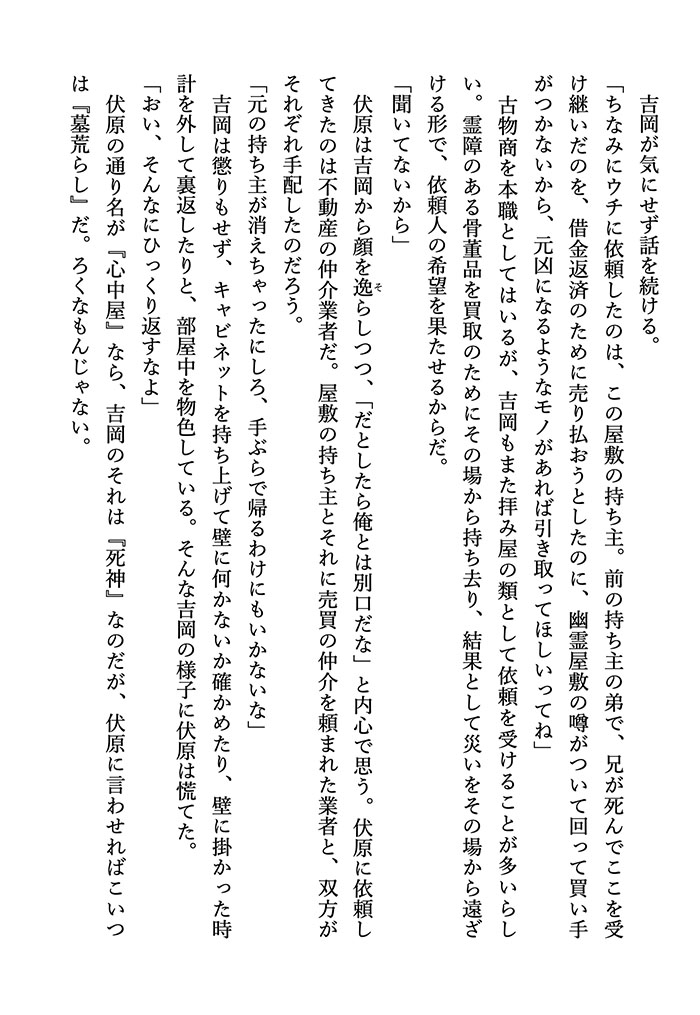 吉岡が気にせず話を続ける。
「ちなみにウチに依頼したのは、この屋敷の持ち主。前の持ち主の弟で、兄が死んでここを受
け継いだのを、借金返済のために売り払おうとしたのに、幽霊屋敷の噂がついて回って買い手
がつかないから、元凶になるようなモノがあれば引き取ってほしいってね」
古物商を本職としてはいるが、吉岡もまた拝み屋の類として依頼を受けることが多いらし
い。霊障のある骨董品を買取のためにその場から持ち去り、結果として災いをその場から遠ざ
ける形で、依頼人の希望を果たせるからだ。
「聞いてないから」
伏原は吉岡から顔を逸らしつつ、「だとしたら俺とは別口だな」と内心で思う。伏原に依頼し
てきたのは不動産の仲介業者だ。屋敷の持ち主とそれに売買の仲介を頼まれた業者と、双方が
それぞれ手配したのだろう。
「元の持ち主が消えちゃったにしろ、手ぶらで帰るわけにもいかないな」
吉岡は懲りもせず、キャビネットを持ち上げて壁に何かないか確かめたり、壁に掛かった時
計を外して裏返したりと、部屋中を物色している。そんな吉岡の様子に伏原は慌てた。
「おい、そんなにひっくり返すなよ」
伏原の通り名が『心中屋』なら、吉岡のそれは『死神』なのだが、伏原に言わせればこいつ
は『墓荒らし』だ。ろくなもんじゃない。